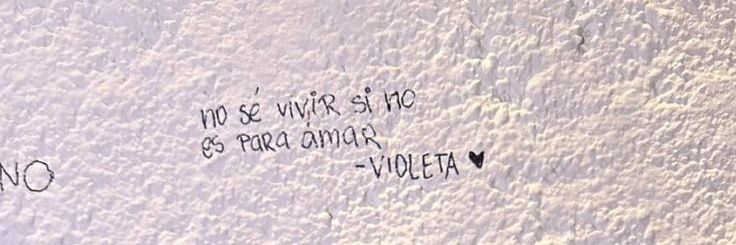 no sé vivir si no
es para amar
-VIOLETA ♥
NO